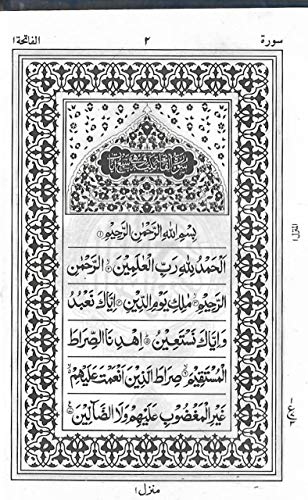 سورة ٢ الفاتحة ١
بِسْمِ اللهِ الرَّحْمٰنِ الرَّحِيْمِ ١
اَلْحَمْدُ لِلّٰهِ رَبِّ الْعٰلَمِيْنَ ١ الرَّحْمٰنِ
الرَّحِيْمِ ٢ مٰلِكِ يَوْمِ الدِّيْنِ ٣ اِيَّاكَ نَعْبُدُ
وَاِيَّاكَ نَسْتَعِيْنُ ٤ اِهْدِنَا الصِّرَاطَ
الْمُسْتَقِيْمَ ٥ صِرَاطَ الَّذِيْنَ اَنْعَمْتَ عَلَيْهِمْ ٦
غَيْرِ الْمَغْضُوْبِ عَلَيْهِمْ وَلَا الضَّآلِّيْنَ ٧
منزل ١